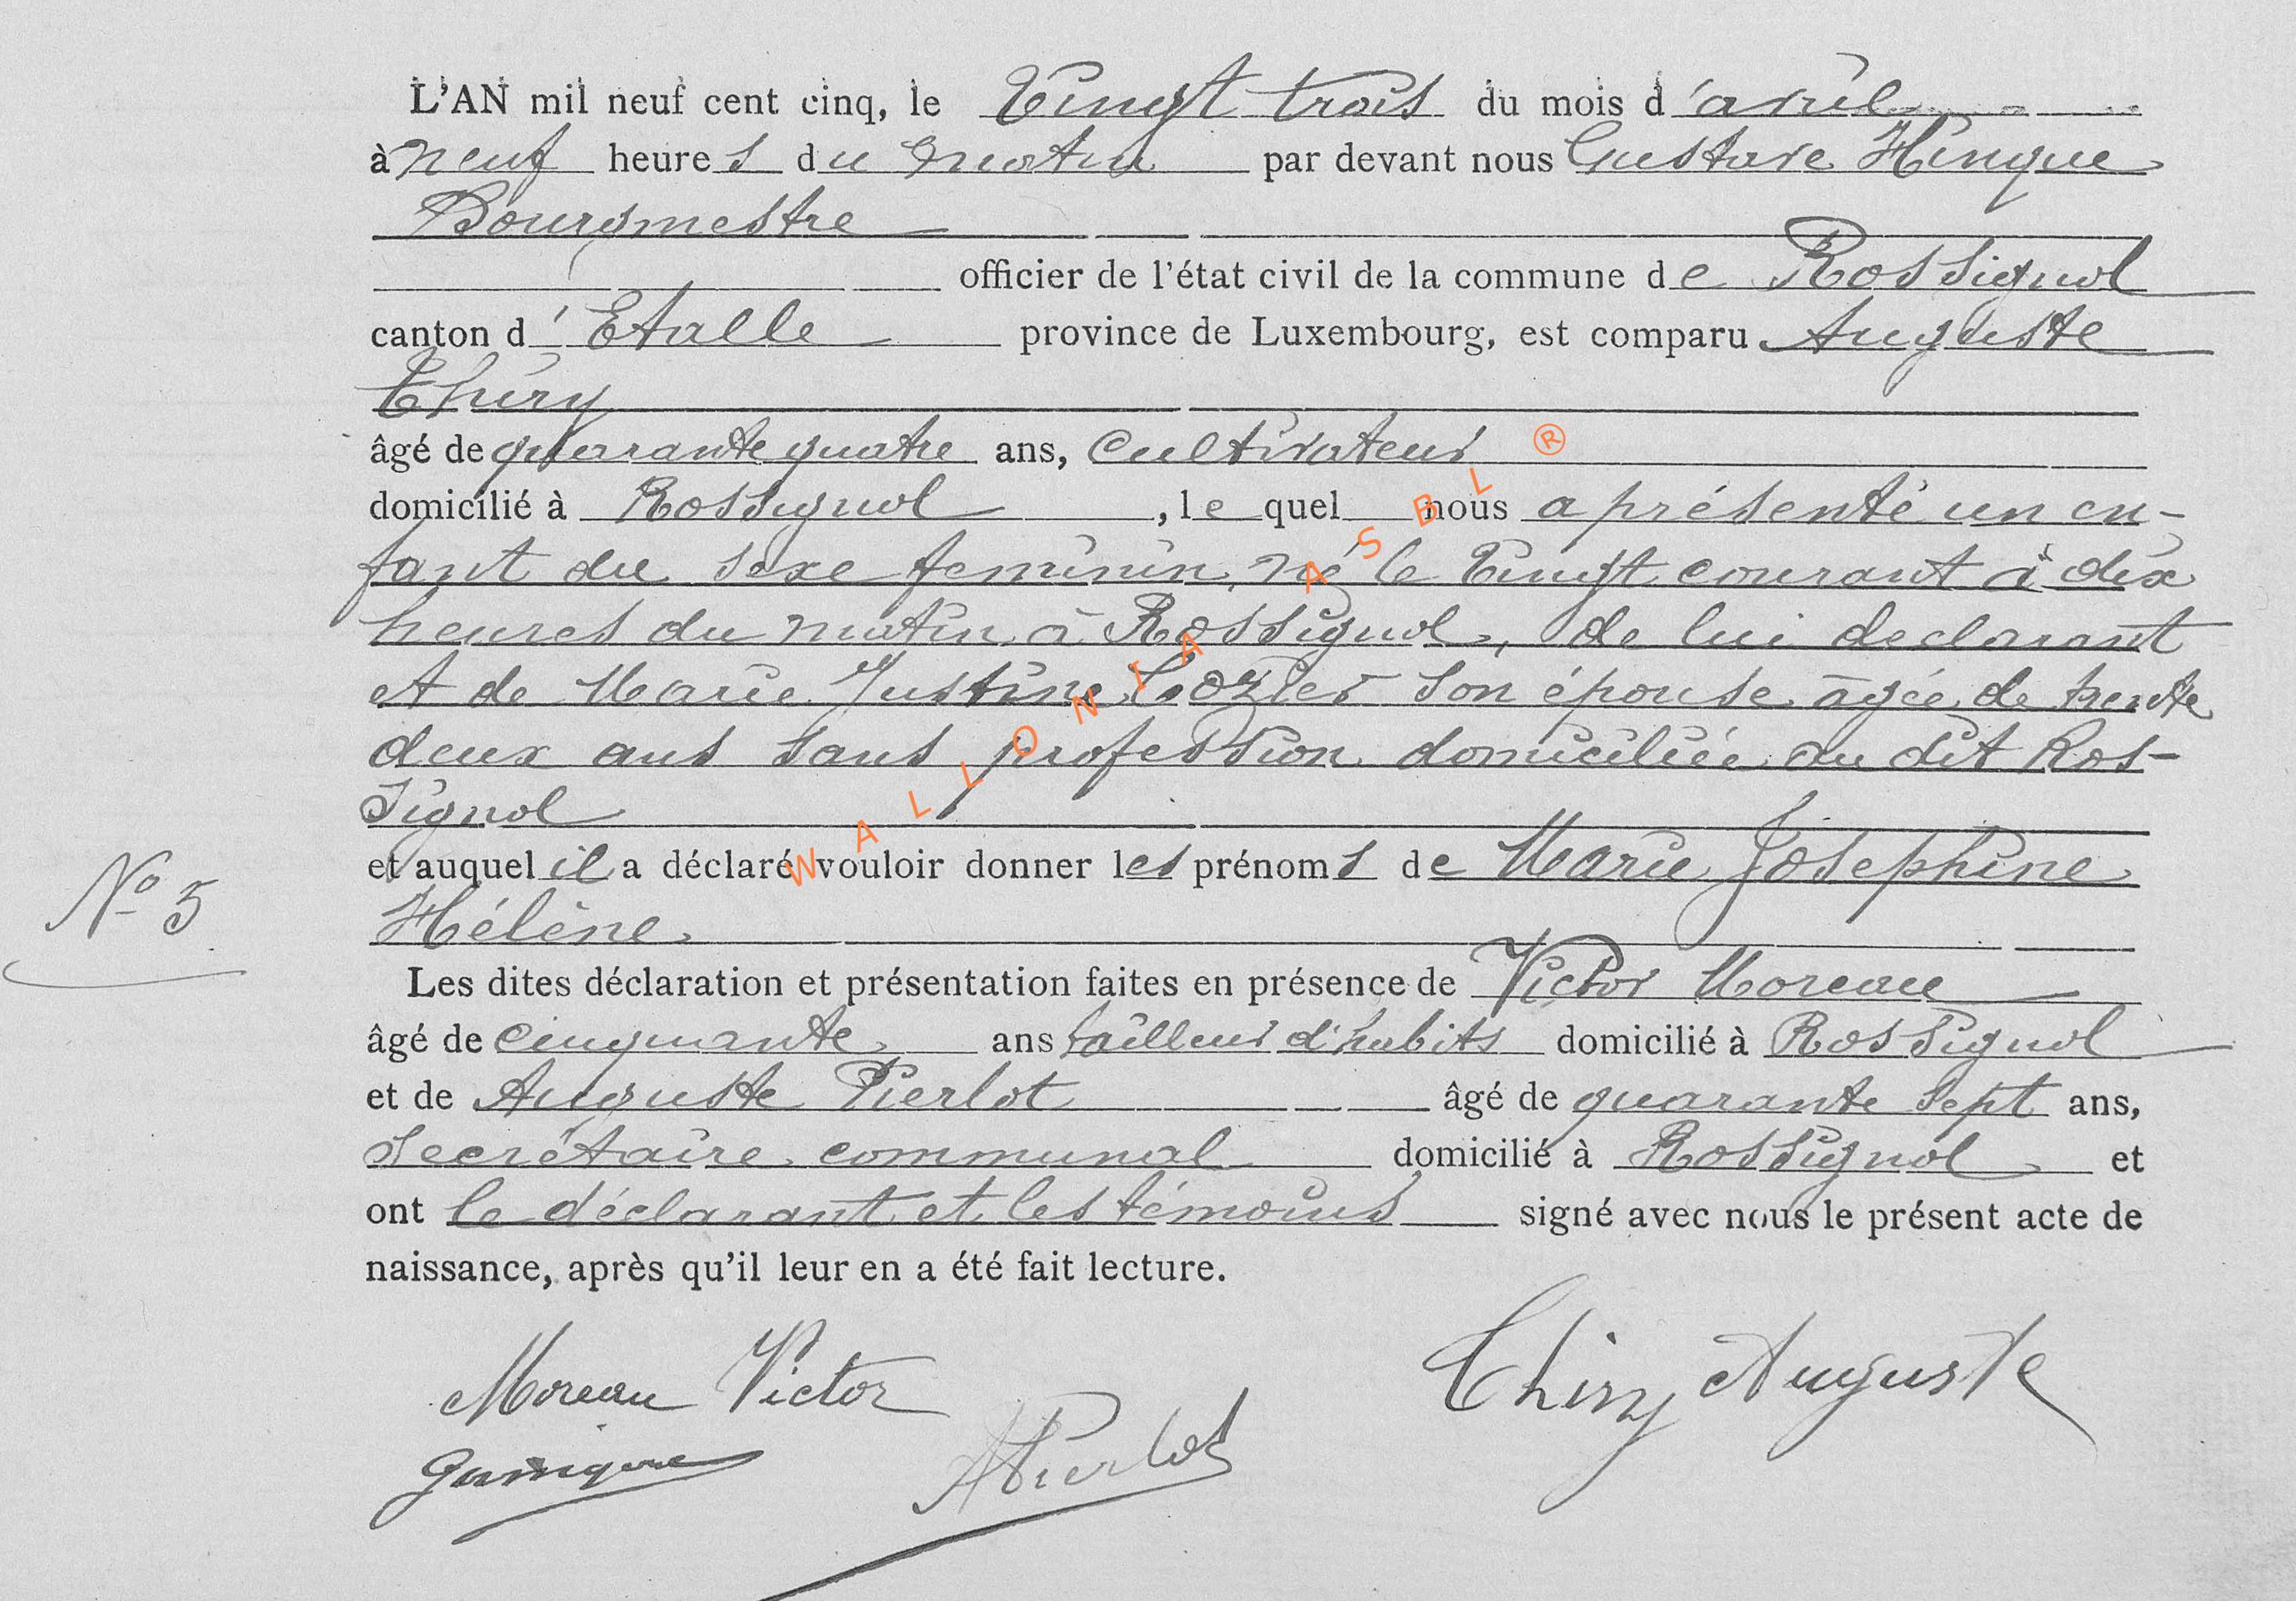 L'AN mil neuf cent cinq, le Vingt trois du mois d'avril
à neuf heures du matin par devant nous Gustave Hinque
Bourgmestre
officier de l'état civil de la commune de Rossignol
canton d'Etalle province de Luxembourg, est comparu Auguste
Thiry
âgé de quarante quatre ans, cultivateur ®
domicilié à Rossignol, le quel nous a présenté un en-
fant du sexe feminin, né le Vingt courant à dix
heures du matin à Rossignol, de lui declarant
et de Marie Justine Lozier son épouse âgée de trente
deux ans sans profession domiciliée au dit Ros-
signol
et auquel il a déclaré vouloir donner les prénoms de Marie Joséphine
Hélène
N° 5
Les dites déclaration et présentation faites en présence de Victor Moreau
âgé de cinquante ans tailleur d'habits domicilié à Rossignol
et de Auguste Pierlot âgé de quarante sept ans,
secrétaire communal domicilié à Rossignol et
ont le déclarant et les témoins signé avec nous le présent acte de
naissance, après qu'il leur en a été fait lecture.
Moreau Victor
Thiry Auguste
APierlot
WALLONIA ASBL